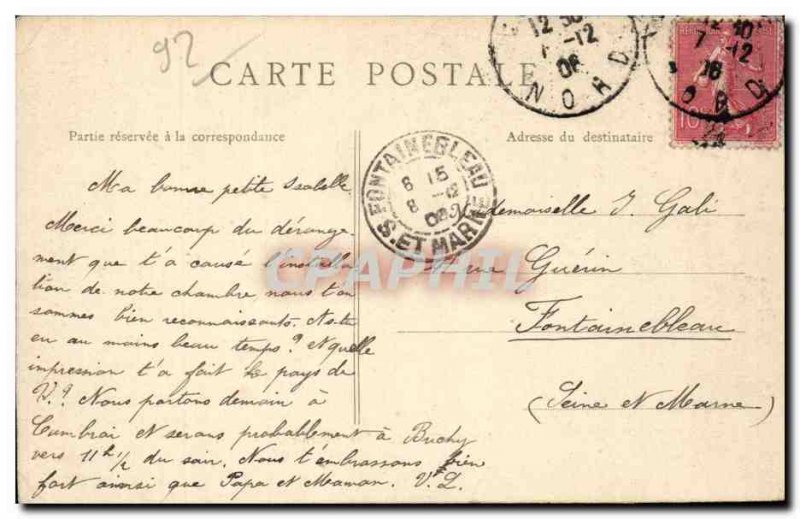 92
CARTE POSTALE
12 30
7 -12
06
NORD
12 30
7 -12
06
10
Partie réservée à la correspondance
Adresse du destinataire
FONTAINEBLEAU
6 15
8 -12
06
S. ET MARNE
Ma bonne petite Isabelle
Merci beaucoup du dérange-
ment que t'a causé l'installa
tion de notre chambre nous t'en
sommes bien reconnaissants. As-tu
eu au moins beau temps? et quelle
impression t'a fait le pays de
V.? Nous partons demain à
Cambrai et serons probablement à Buchy
vers 11h 1/2 du soir. Nous t'embrassons bien
fort ainsi que Papa et Maman. V. L.
Mademoiselle I. Gali
rue Guérin
Fontainebleau
(Seine et Marne)
CPAPHIL